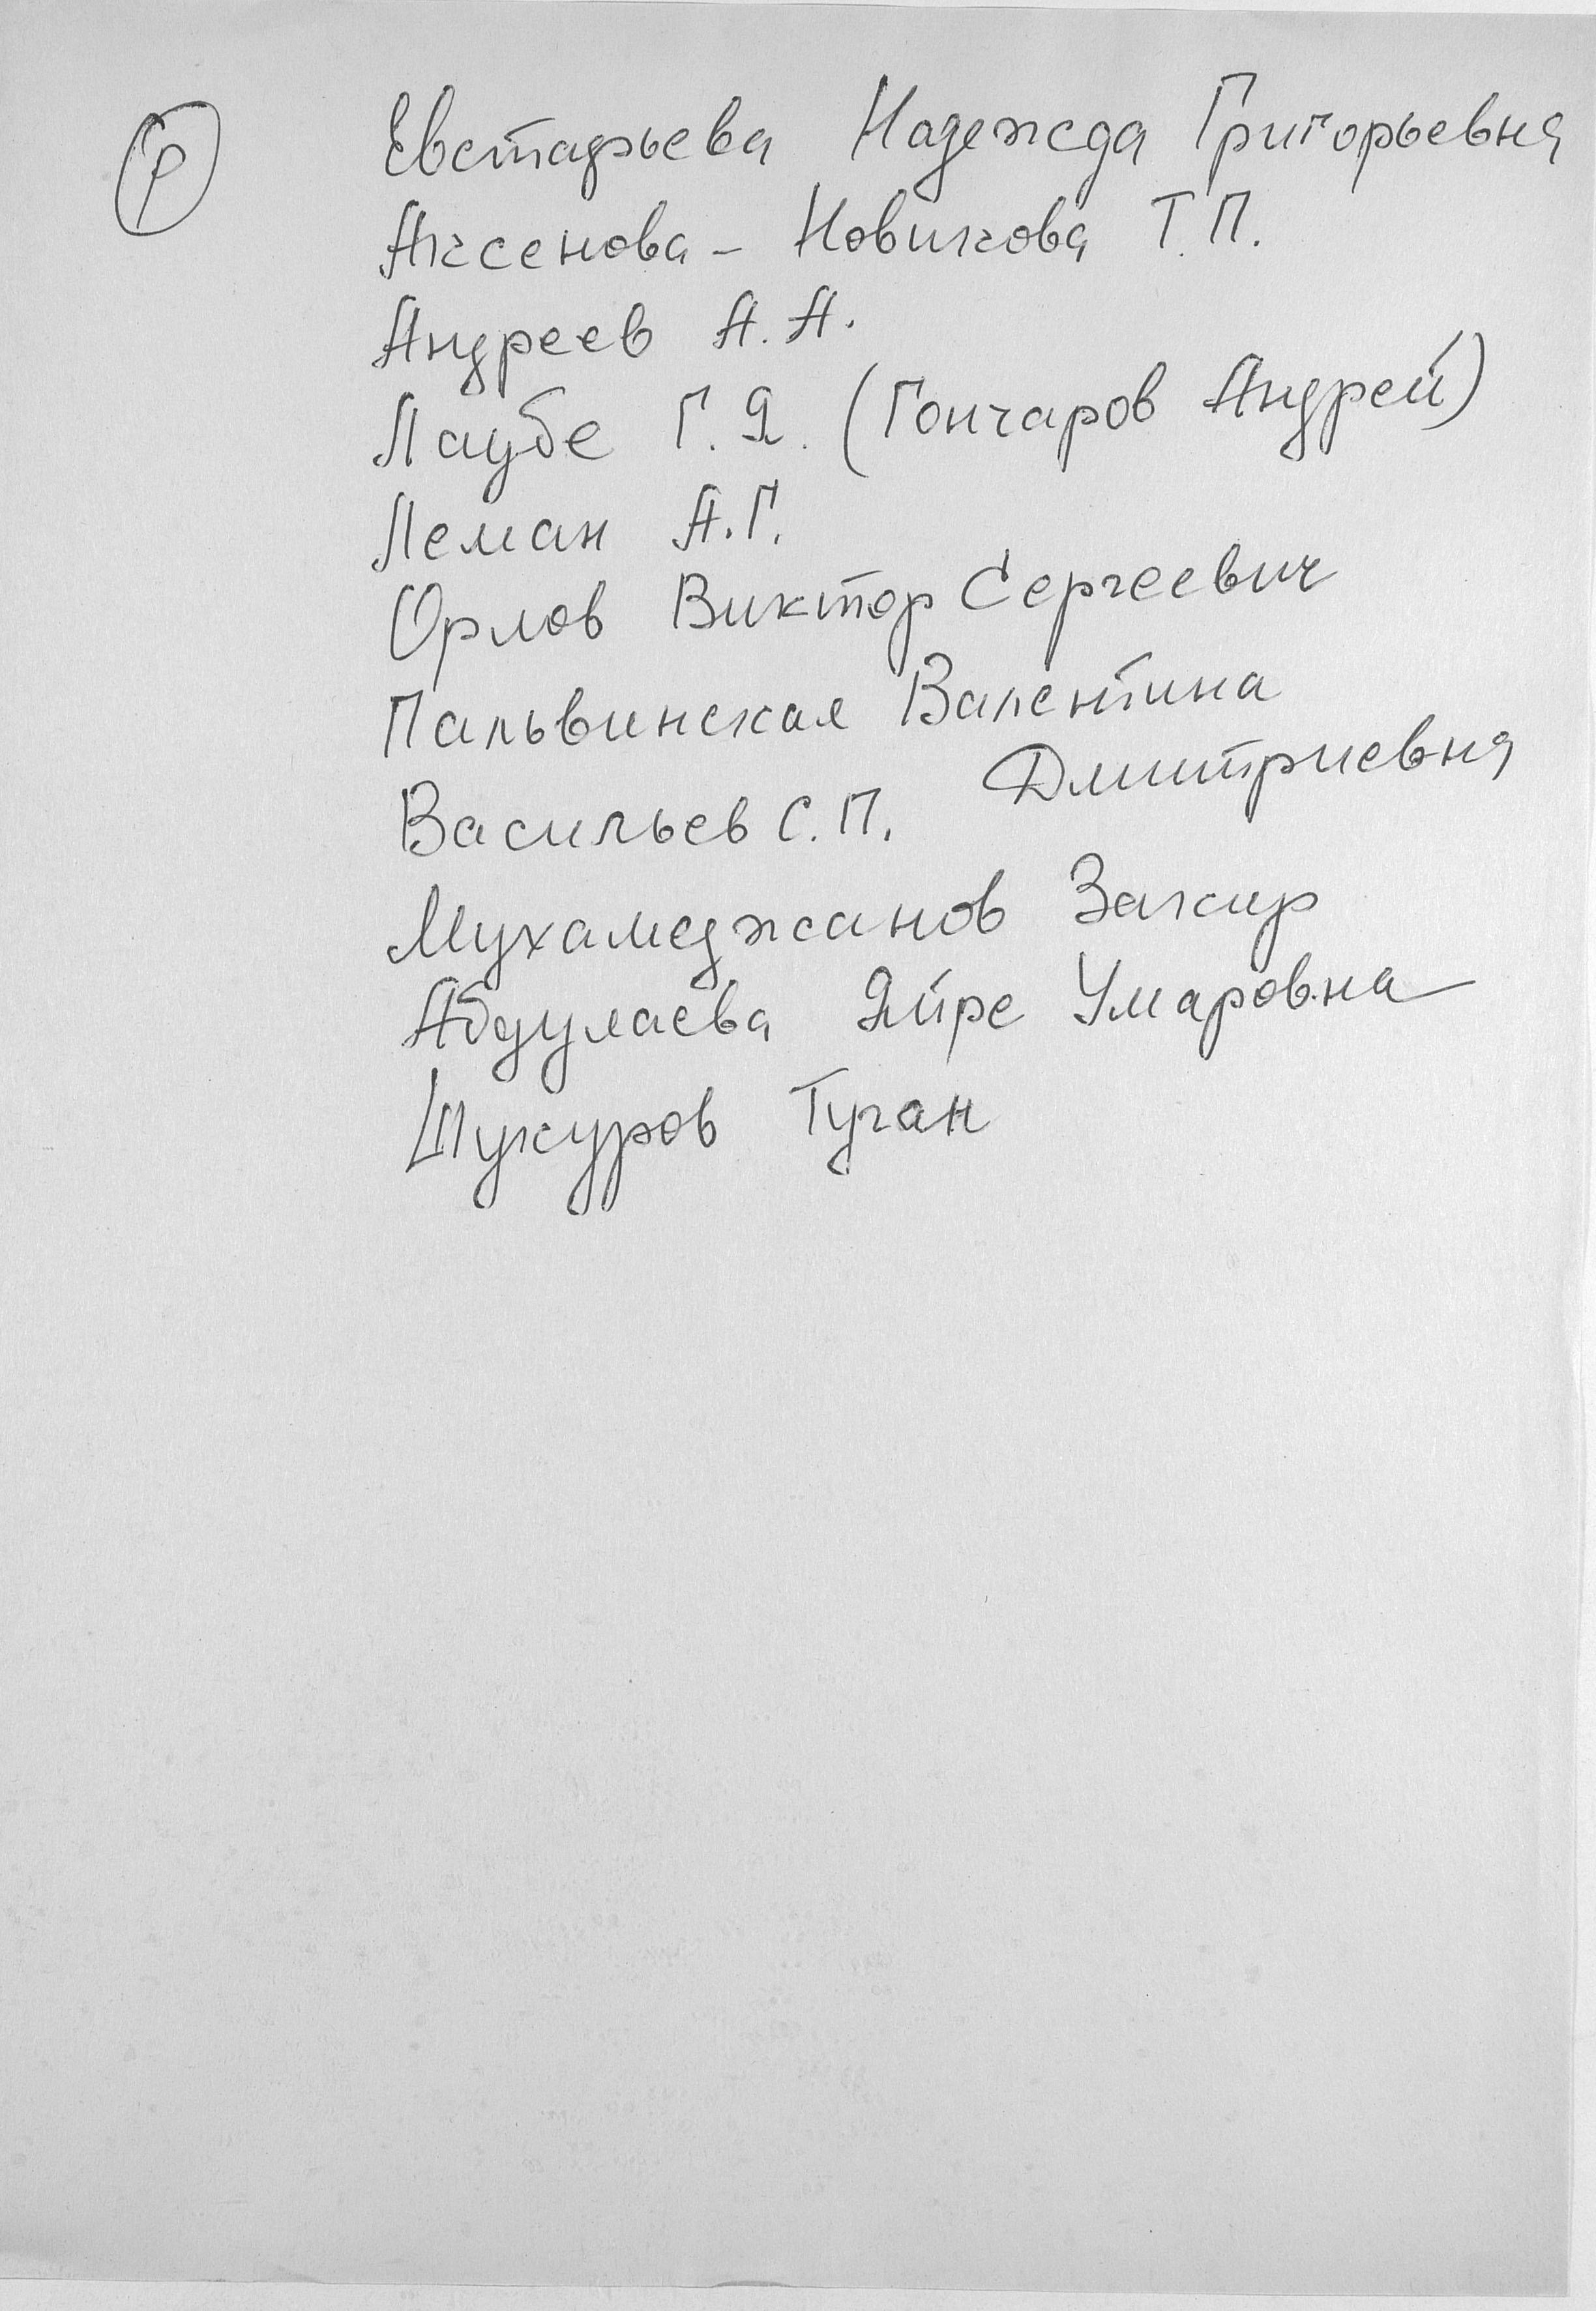 Р
Евстафьева Надежда Григорьевна
Аксенова - Новикова Т.П.
Андреев А.А.
Лаубе Г.Я. (Гончаров Андрей)
Леман А.Г.
Орлов Виктор Сергеевич
Пальвинская Валентина
Дмитриевна
Васильев С.П.
Мухамеджанов Закир
Абдулаева Яйре Умаровна
Шукуров Туган